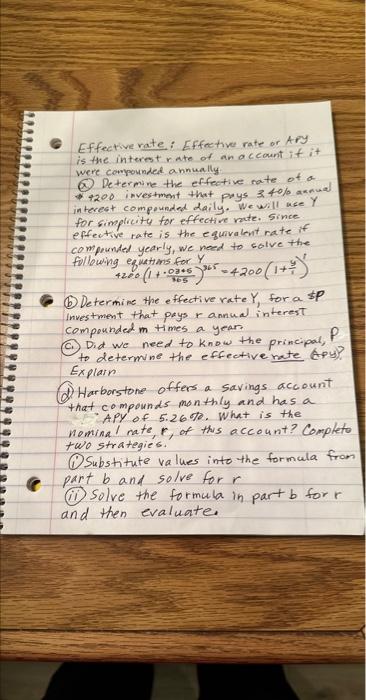 Effective rate: Effective rate or APY
is the interest rate of an account if it
were compounded annually.
ⓐ Determine the effective rate of a
$4200 investment that pays 3.40% annual
interest compounded daily. We will use Y
for simplicity for effective rate. Since
effective rate is the equivalent rate if
compounded yearly, we need to solve the
following equations for Y
4200 (1 + .0345/365)^365 = 4200 (1 + y/1)^1
ⓑ Determine the effective rate Y, for a $P
investment that pays r annual interest
compounded m times a year.
ⓒ Did we need to know the principal, P
to determine the effective rate (APY)?
Explain
ⓓ Harborstone offers a savings account
that compounds monthly and has a
APY of 5.26%. What is the
nominal rate, r, of this account? Complete
two strategies.
ⓘ Substitute values into the formula from
part b and solve for r
ⓘⓘ Solve the formula in part b for r
and then evaluate.